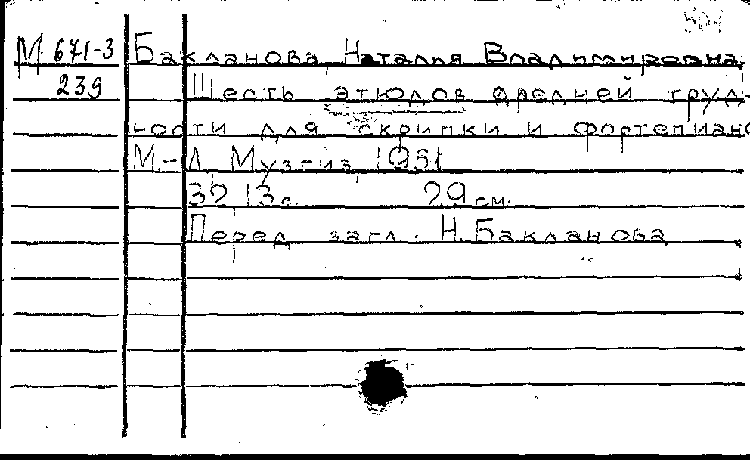 М 671-3 Бакланова, Наталья Владимировна
239 Шесть этюдов средней труд-
ности для скрипки и фортепиано
М.-Л. Музгиз, 1951
32, 13 с. 29 см.
Перед загл.: Н. Бакланова